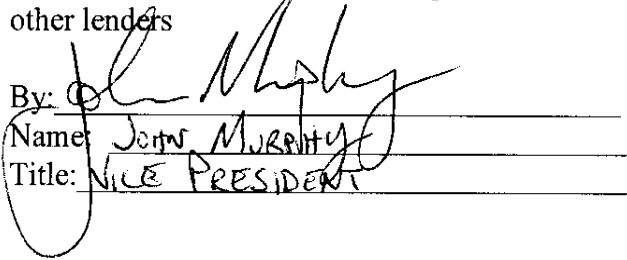 other lenders
By: John Murphy
Name: John Murphy
Title: Vice President